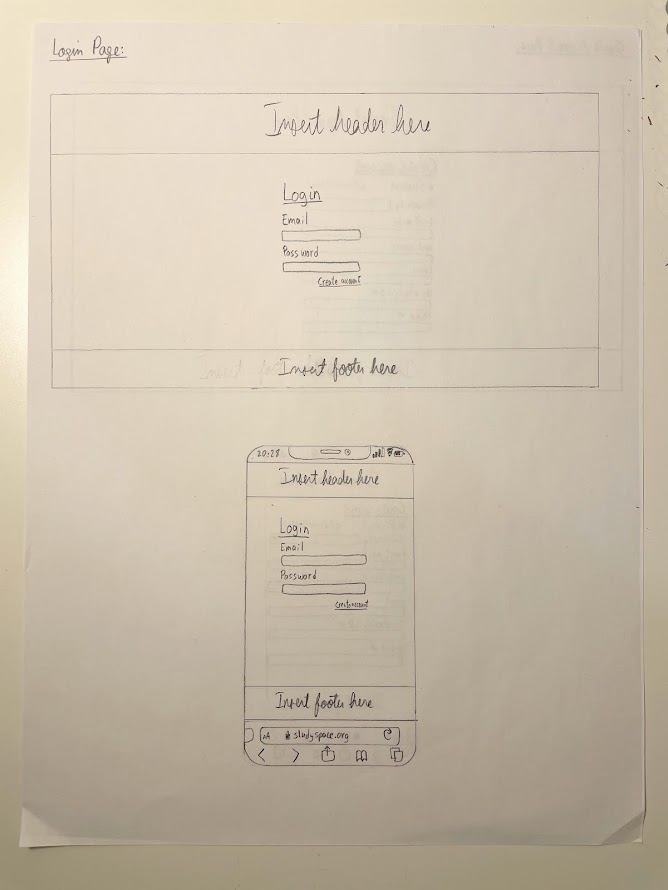 Login Page:
Insert header here
Login
Email
Password
Create account
Insert footer here
20:28
Insert header here
Login
Email
Password
Create account
Insert footer here
AA studyspace.org